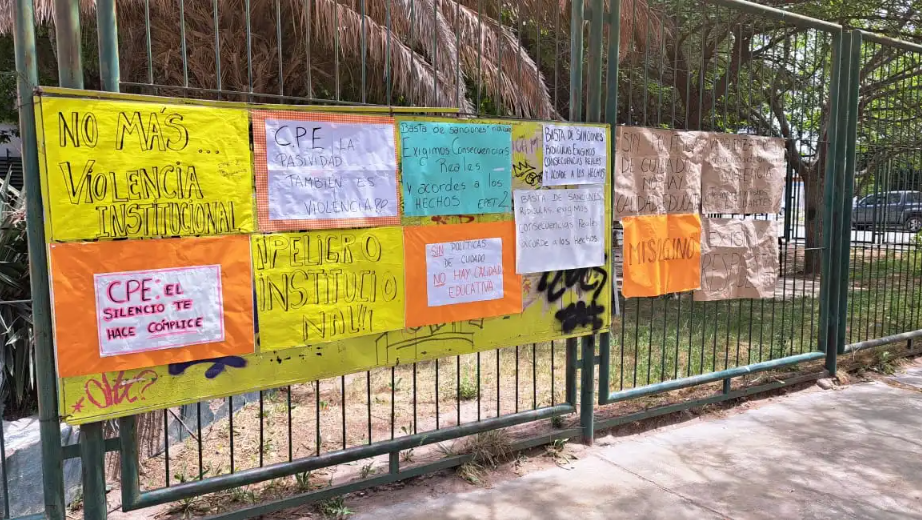 NO MÁS...
VIOLENCIA
INSTITUCIONAL
CPE LA
PASIVIDAD
TAMBIEN ES
VIOLENCIA
Basta de sanciones
Exigimos Consecuencias
Reales
y acordes a los
HECHOS
BASTA DE SANCIONES
RIDICULAS EXIGIMOS
CONSECUENCIAS REALES
Y ACORDE A LOS HECHOS
BASTA DE SANCIONES
Ridiculas, exigimos
Consecuencias Reales
acorde a los Hechos
CPE. EL
SILENCIO TE
HACE CÓMPLICE
¡PELIGRO
INSTITUCIO
NAL!!
SIN POLÍTICAS
DE CUIDADO
NO HAY CALIDAD
EDUCATIVA
DE CUIDADO
NO HAY
CALIDAD
MISOGINO